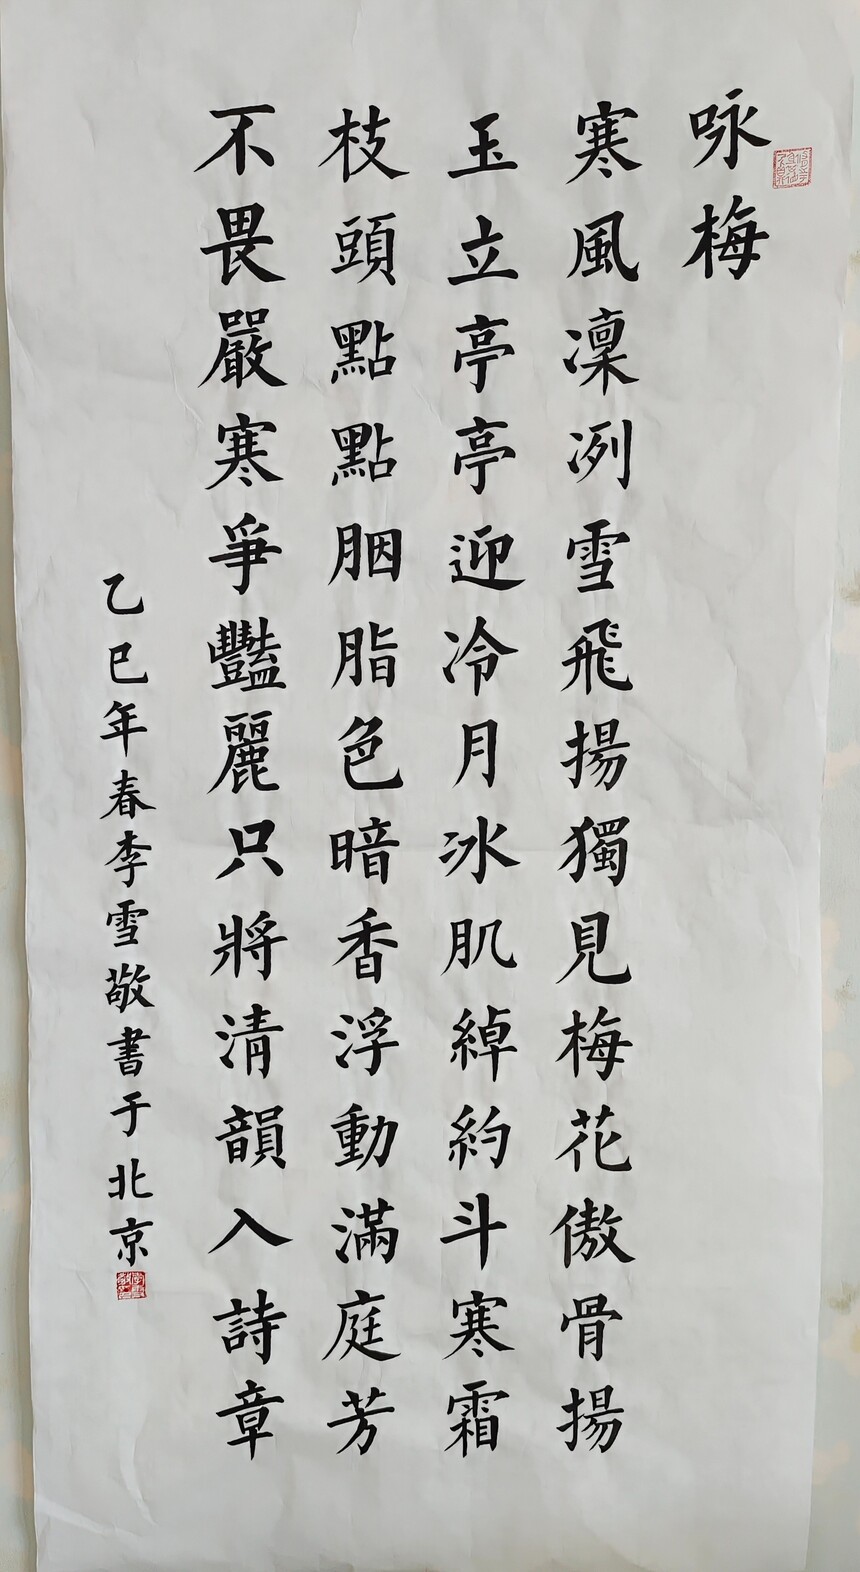 咏梅
寒風凜冽雪飛揚獨見梅花傲骨揚
玉立亭亭迎冷月冰肌綽約斗寒霜
枝頭點點胭脂色暗香浮動滿庭芳
不畏嚴寒爭豔麗只將清韻入詩章
乙巳年春李雪敬書于北京